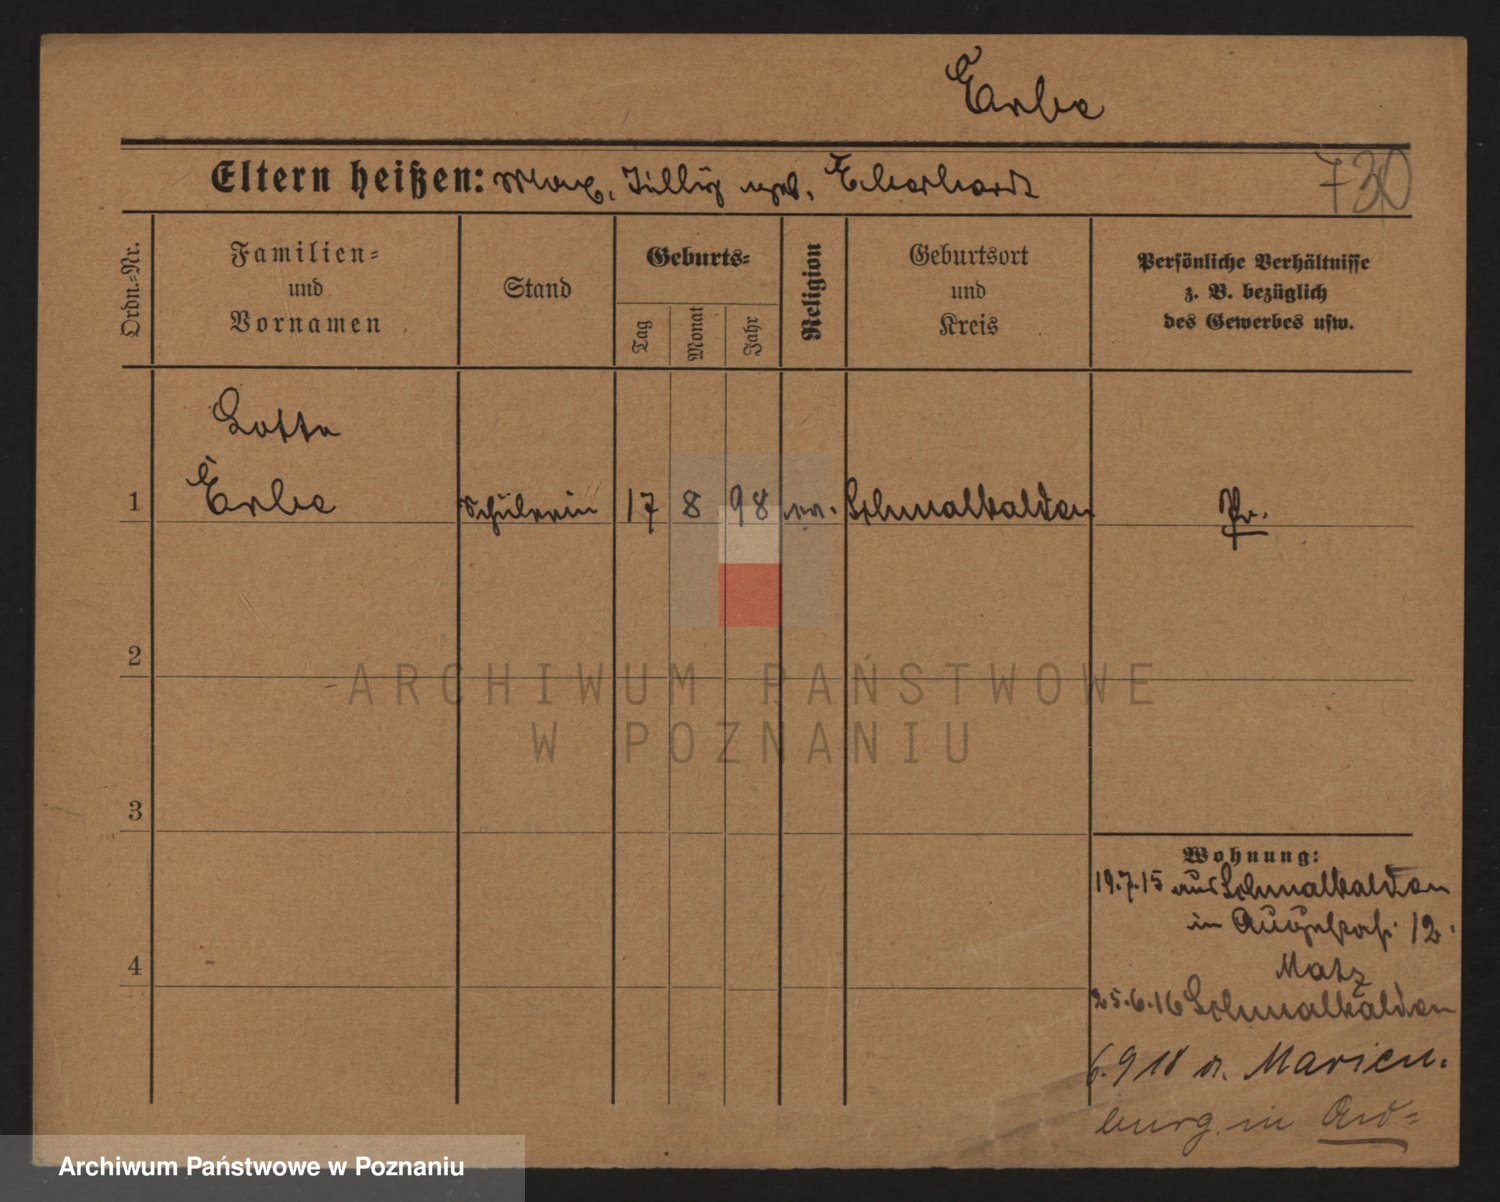 Erbe
Eltern heißen: Max, Tilly geb. Eberhardt
730
Ordn.-Nr.
Familien-
und
Vornamen
Stand
Geburts-
Tag
Monat
Jahr
Religion
Geburtsort
und
Kreis
Persönliche Verhältnisse
z. B. bezüglich
des Gewerbes usw.
Lotte
1 Erbe Schülerin 17 8 98 ev. Schmalkalden Pr.
2
3
4
ARCHIWUM PAŃSTWOWE
W POZNANIU
Wohnung:
19.7.15 aus Schmalkalden
in 12
Matz
25.6.16 Schmalkalden
6.9 18 a. Marien-
burg in
Archiwum Państwowe w Poznaniu